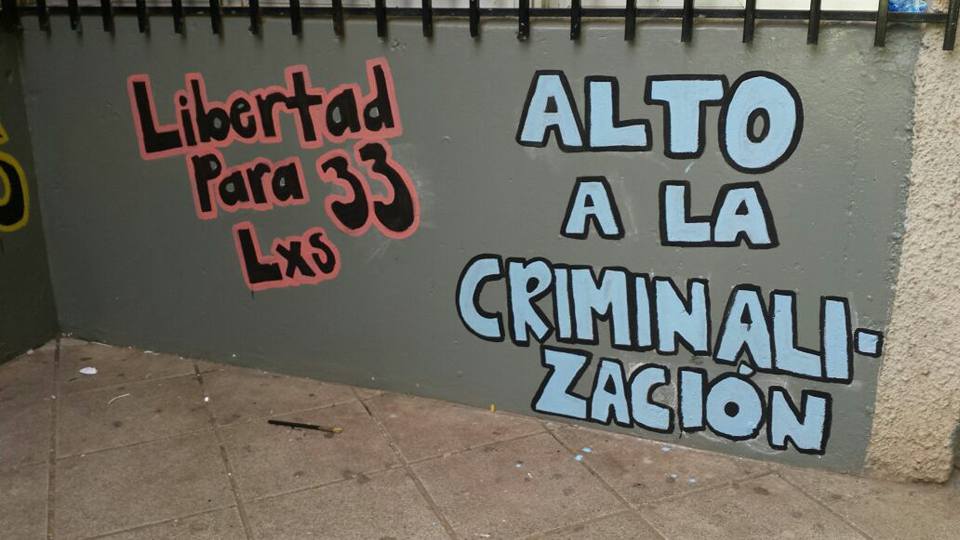 Libertad
Para 33
Lxs
ALTO
A LA
CRIMINALI-
ZACIÓN